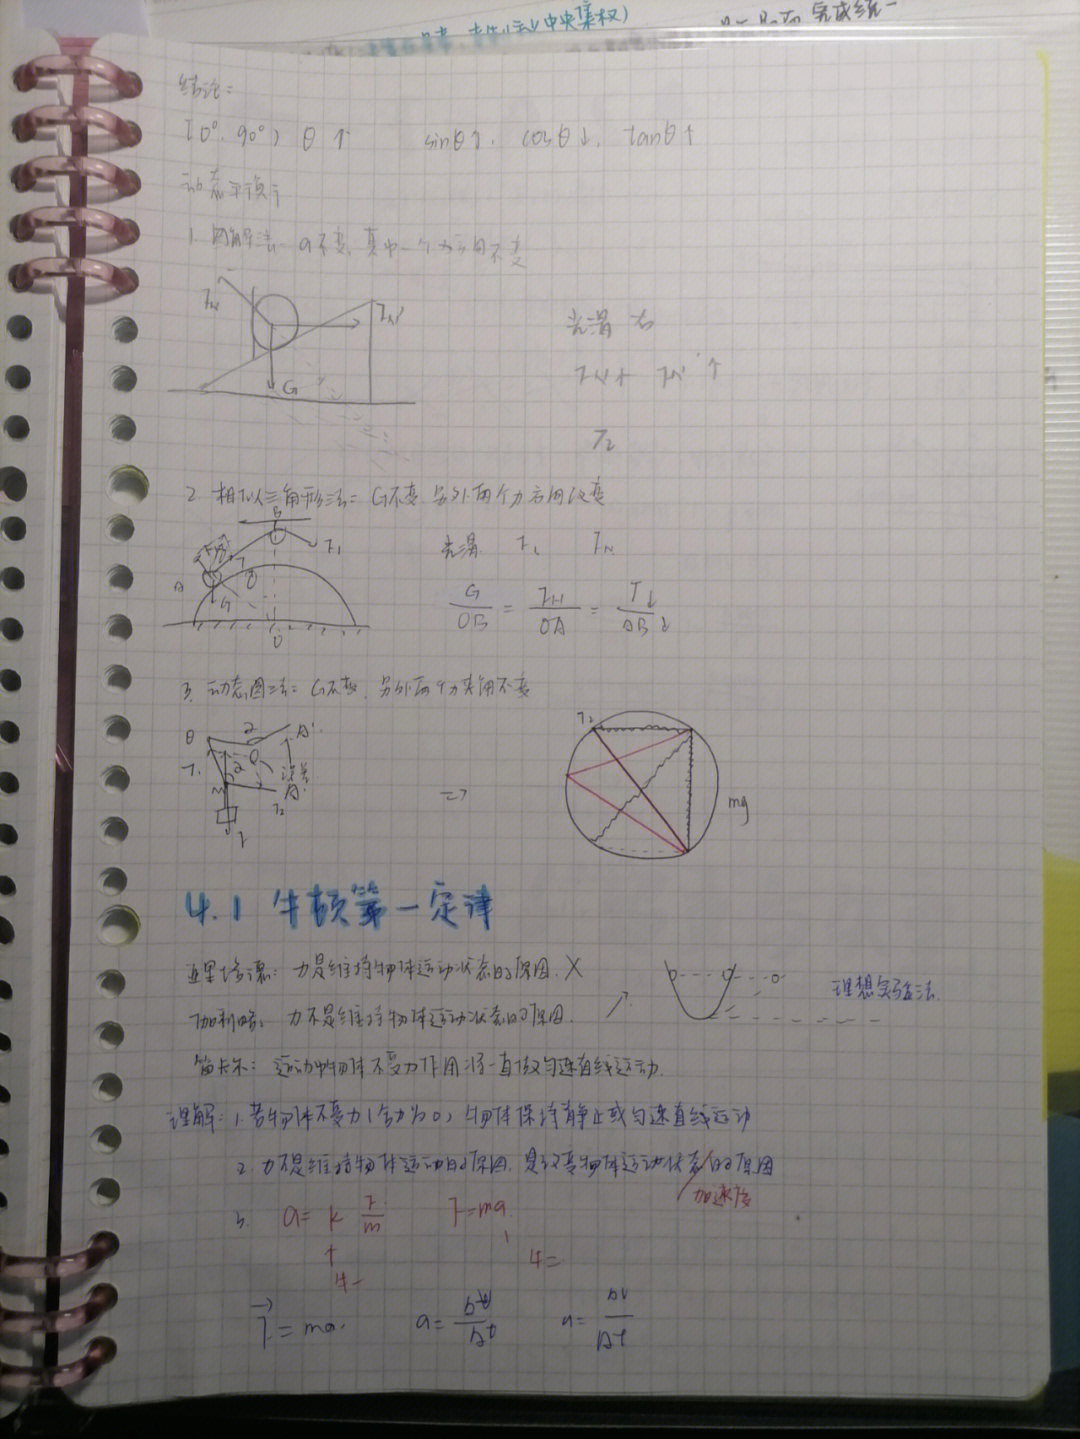 中央集权)
完成统一
结论:
[0°, 90°) θ↑ sinθ↑, cosθ↓, tanθ↑
动态平衡:
1. 图解法: G不变, 其中一个力方向不变
FN FN'
G
光滑
FN↑ FN'↑
2. 相似三角形法: G不变 另外两个力方向改变
B
T
A
G
O
光滑 FN
G/OB = FN/OA = T↓/AB↓
3. 动态圆法: G不变, 另外两个力夹角不变
A'
M
T2
⇒
mg
4.1 牛顿第一定律
亚里士多德: 力是维持物体运动状态的原因. X
伽利略: 力不是维持物体运动状态的原因.
理想实验法.
笛卡尔: 运动中物体不受力作用 将一直做匀速直线运动.
理解: 1. 若物体不受力(合力为0), 物体保持静止或匀速直线运动
2. 力不是维持物体运动的原因, 是改变物体运动状态的原因
加速度
3. a = k F/m F=ma
F = ma. a = Δv/Δt a = Δv/Δt